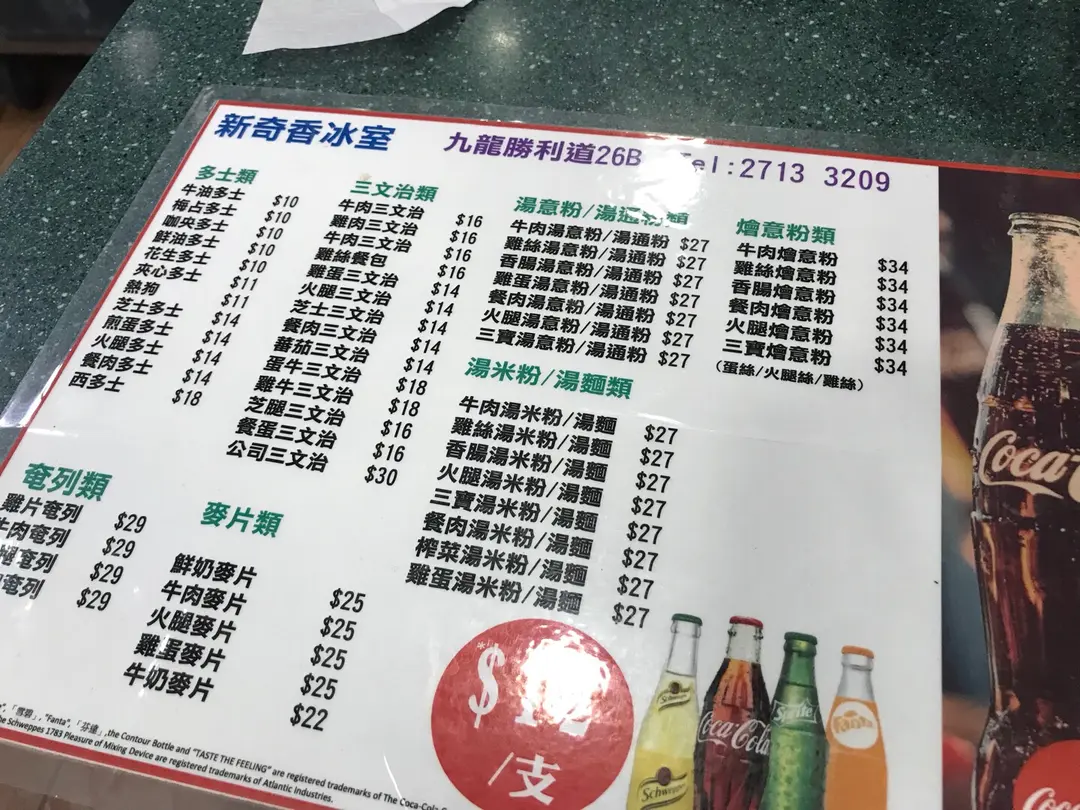 新奇香冰室 九龍勝利道26B Tel:2713 3209
多士類
牛油多士 $10
梅占多士 $10
咖央多士 $10
鮮油多士 $10
花生多士 $10
夾心多士 $11
熱狗 $11
芝士多士 $14
煎蛋多士 $14
火腿多士 $14
餐肉多士 $14
西多士 $18
三文治類
牛肉三文治 $16
雞肉三文治 $16
牛肉三文治 $16
雞絲餐包 $16
雞蛋三文治 $14
火腿三文治 $14
芝士三文治 $14
餐肉三文治 $14
蕃茄三文治 $14
蛋牛三文治 $18
雞牛三文治 $18
芝腿三文治 $16
餐蛋三文治 $16
公司三文治 $30
湯意粉/湯通粉類
牛肉湯意粉/湯通粉 $27
雞絲湯意粉/湯通粉 $27
香腸湯意粉/湯通粉 $27
雞蛋湯意粉/湯通粉 $27
餐肉湯意粉/湯通粉 $27
火腿湯意粉/湯通粉 $27
三寶湯意粉/湯通粉 $27
燴意粉類
牛肉燴意粉 $34
雞絲燴意粉 $34
香腸燴意粉 $34
餐肉燴意粉 $34
火腿燴意粉 $34
三寶燴意粉 $34
(蛋絲/火腿絲/雞絲)
湯米粉/湯麵類
牛肉湯米粉/湯麵 $27
雞絲湯米粉/湯麵 $27
香腸湯米粉/湯麵 $27
火腿湯米粉/湯麵 $27
三寶湯米粉/湯麵 $27
餐肉湯米粉/湯麵 $27
榨菜湯米粉/湯麵 $27
雞蛋湯米粉/湯麵 $27
奄列類
雞片奄列 $29
牛肉奄列 $29
腿奄列 $29
奄列 $29
麥片類
鮮奶麥片 $25
牛肉麥片 $25
火腿麥片 $25
雞蛋麥片 $25
牛奶麥片 $22
*$
/支
Schweppes
Coca-Cola
Sprite
Fanta
Schweppes
Coca
Coca
「雪碧」, "Fanta", 「芬達」, the Contour Bottle and "TASTE THE FEELING" are registered trademarks of The Coca-Cola
Schweppes 1783 Pleasure of Mixing Device are registered trademarks of Atlantic Industries.